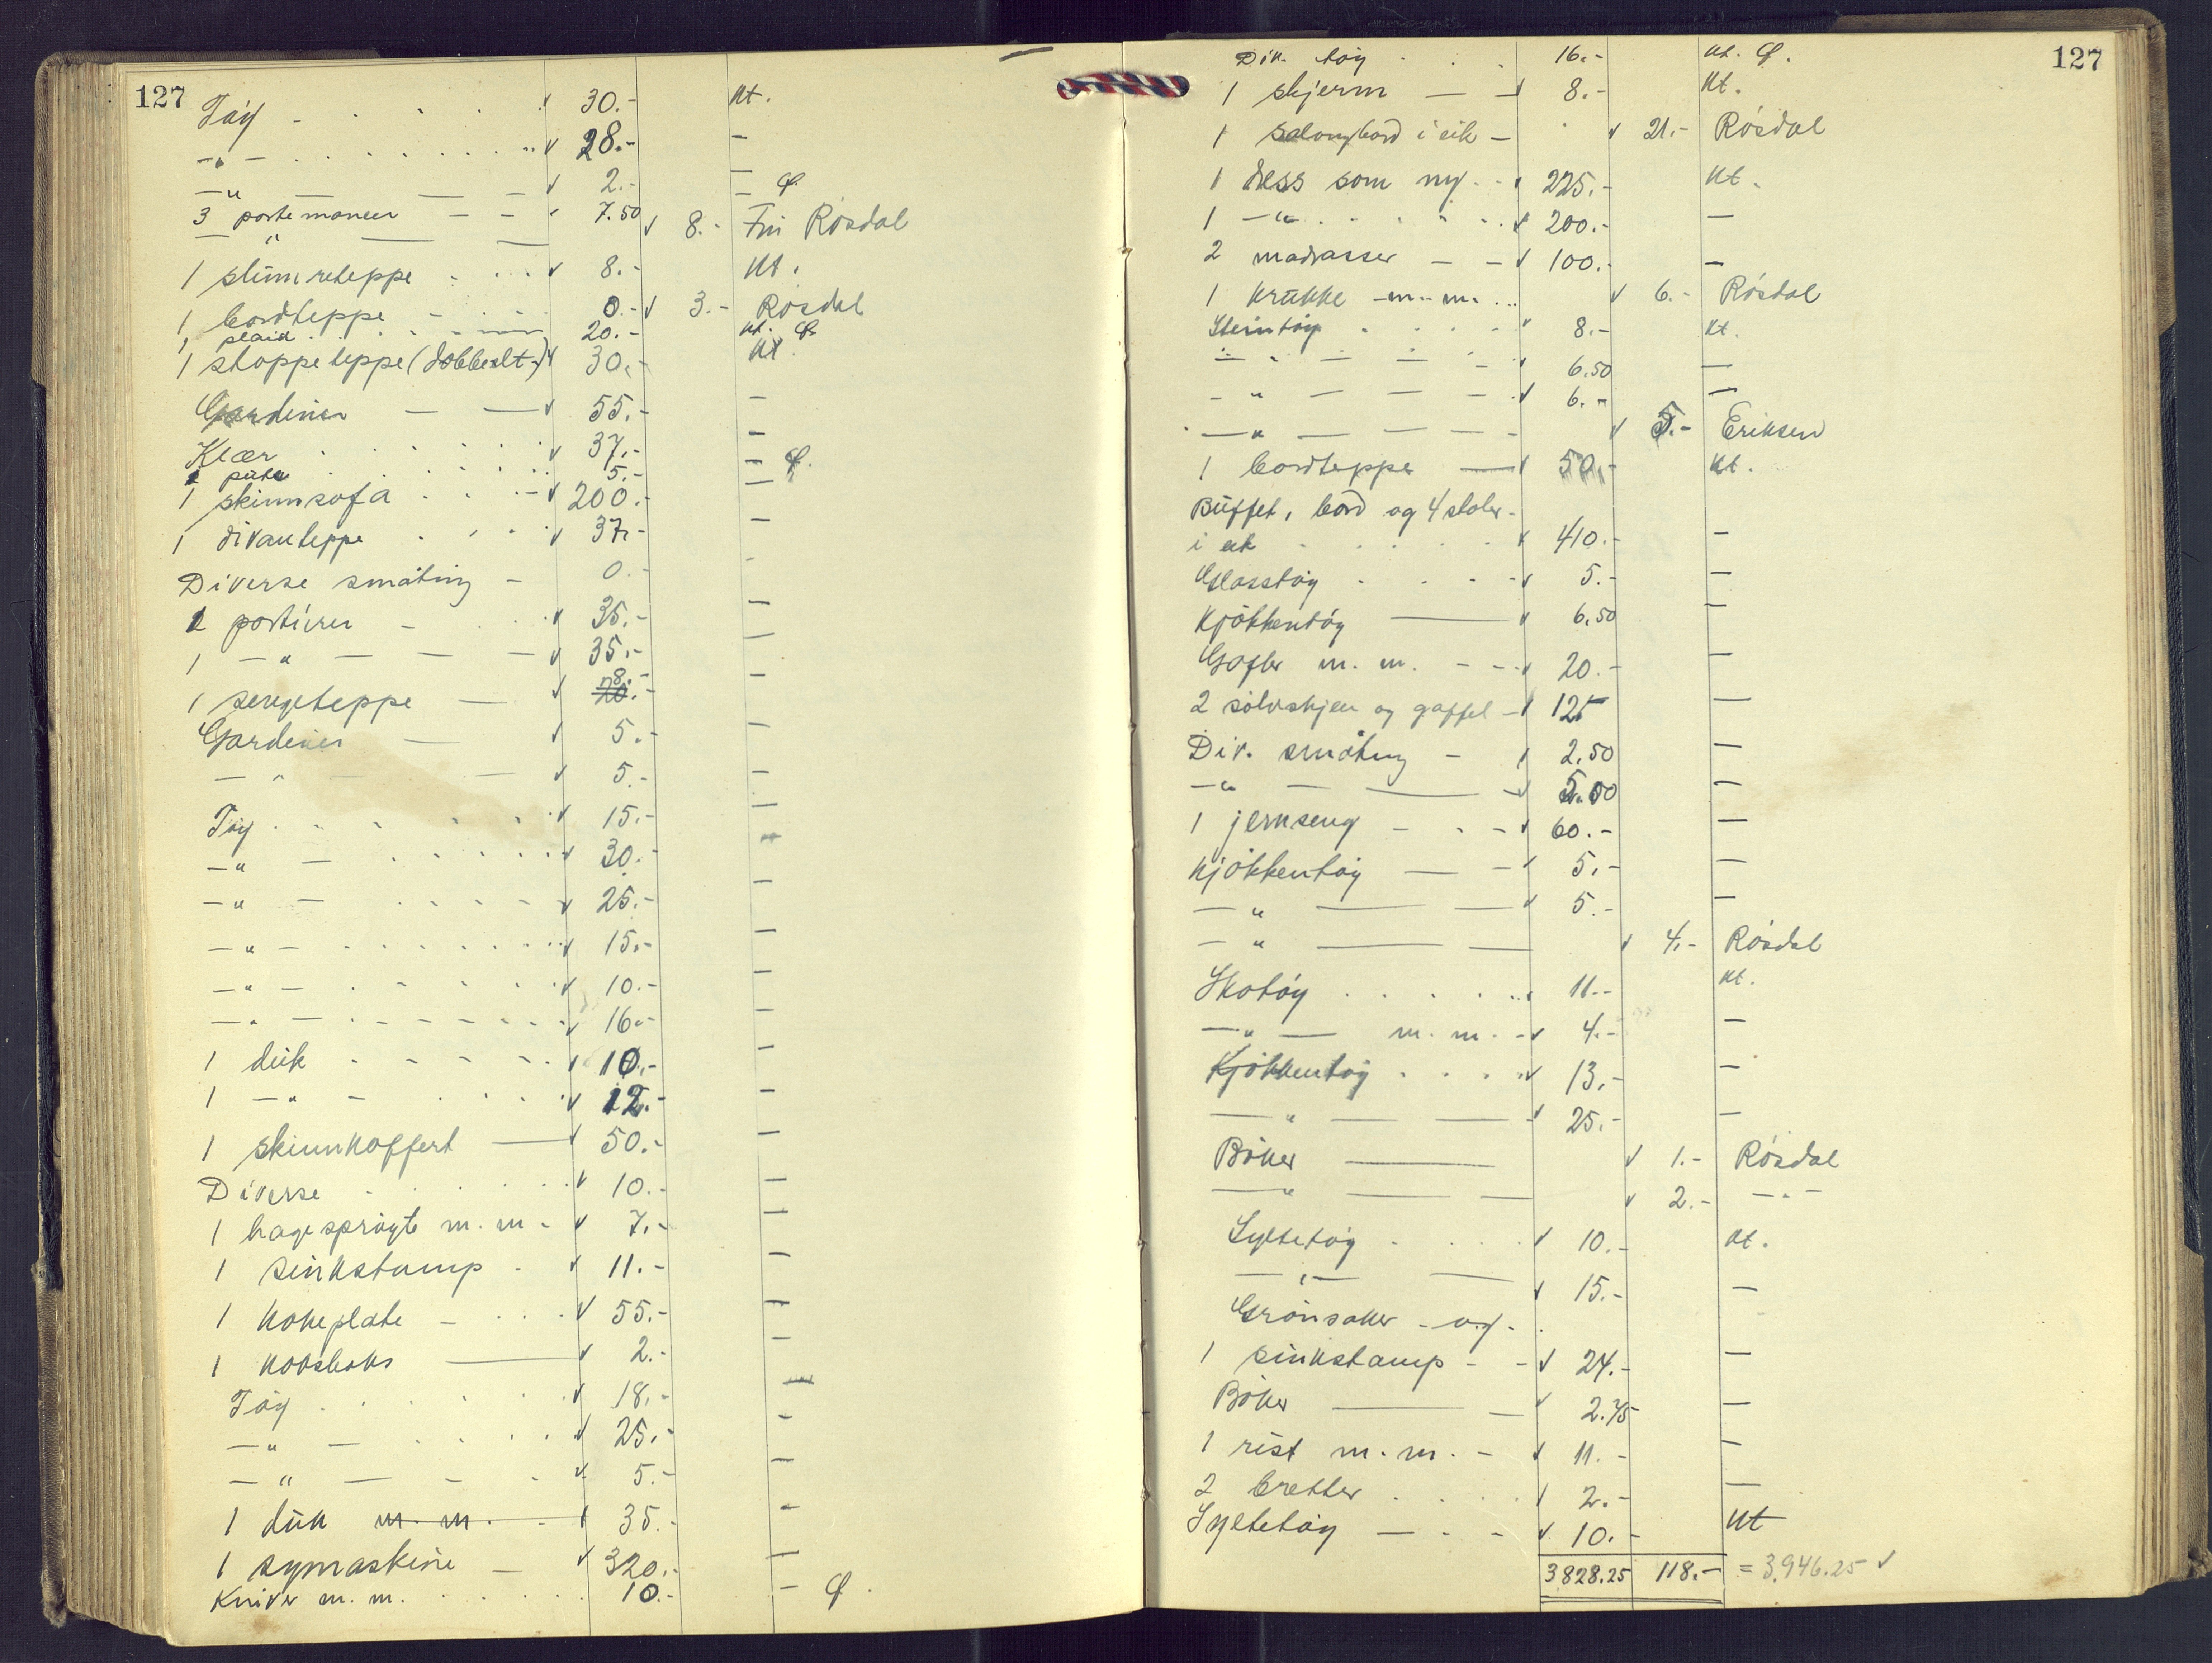 127
Tøy - 30.- Kt.
-"- 28.- -
-"- 2.- -
3 portemoneer - - 7.50 -
-"- 8.- Fru Røsdal
1 slumreteppe 8.- Kt.
1 bordteppe 0.- 3.- Røsdal
1 plaid 20.- Kt.
1 stoppeteppe (dobbelt) 30.- Kt.
Gardiner - - 55.- -
Klær 37.- -
1 pute 5.- -
1 skinnsofa 200.- -
1 divanteppe 37.- -
Diverse småting - 0.- -
2 portierer - 35.- -
1 -"- 35.- -
1 sengeteppe - 28.- -
Gardiner - 5.- -
-"- 5.- -
Tøy 15.- -
-"- 30.- -
-"- 25.- -
-"- 15.- -
-"- 10.- -
-"- 16.- -
1 duk 10.- -
1 -"- 12.- -
1 skinnkoffert - 50.- -
Diverse 10.- -
1 hagesprøyte m.m - 7.- -
1 sinkstamp - 11.- -
1 kokeplate - 55.- -
1 koksboks - 2.- -
Tøy 18.- -
-"- 25.- -
-"- 5.- -
1 duk m.m. - 35.- -
1 symaskine - 320.- -
Kniver m.m. 10.- -
127
Div. tøy 16.- Kt.
1 skjerm - - 8.- Kt.
1 salongbord i eik - 21.- Røsdal
1 dress som ny 225.- Kt.
1 -"- 200.- -
2 madrasser - - 100.- -
1 krukke m.m. 6.- Røsdal
Steintøy 8.- Kt.
-"- 6.50 -
-"- 6.- -
-"- 5.- Eriksen
1 bordteppe - 50.- Kt.
Buffet, bord og 4 stoler
i eik 410.- -
Glasstøy 5.- -
Kjøkkentøy - 6.50 -
Gafler m.m. - 20.- -
2 sølvskjeer og gaffel - 125 -
Div. småting - 2.50 -
-"- 5.00 -
1 jernseng - 60.- -
Kjøkkentøy - - 5.- -
-"- 5.- -
-"- 4.- Røsdal
Skotøy 11.- Kt.
-"- m.m. 4.- -
Kjøkkentøy 13.- -
-"- 25.- -
Bøker - 1.- Røsdal
-"- 2.- -"-
Syltetøy 10.- Kt.
-"- 15.- -
Grønsaker - og -
1 sinkstamp - - 24.- -
Bøker - 2.75 -
1 rist m.m. - 11.- -
2 bretter 2.- -
Syltetøy - - 10.- Kt
3828.25 118.- = 3.946.25